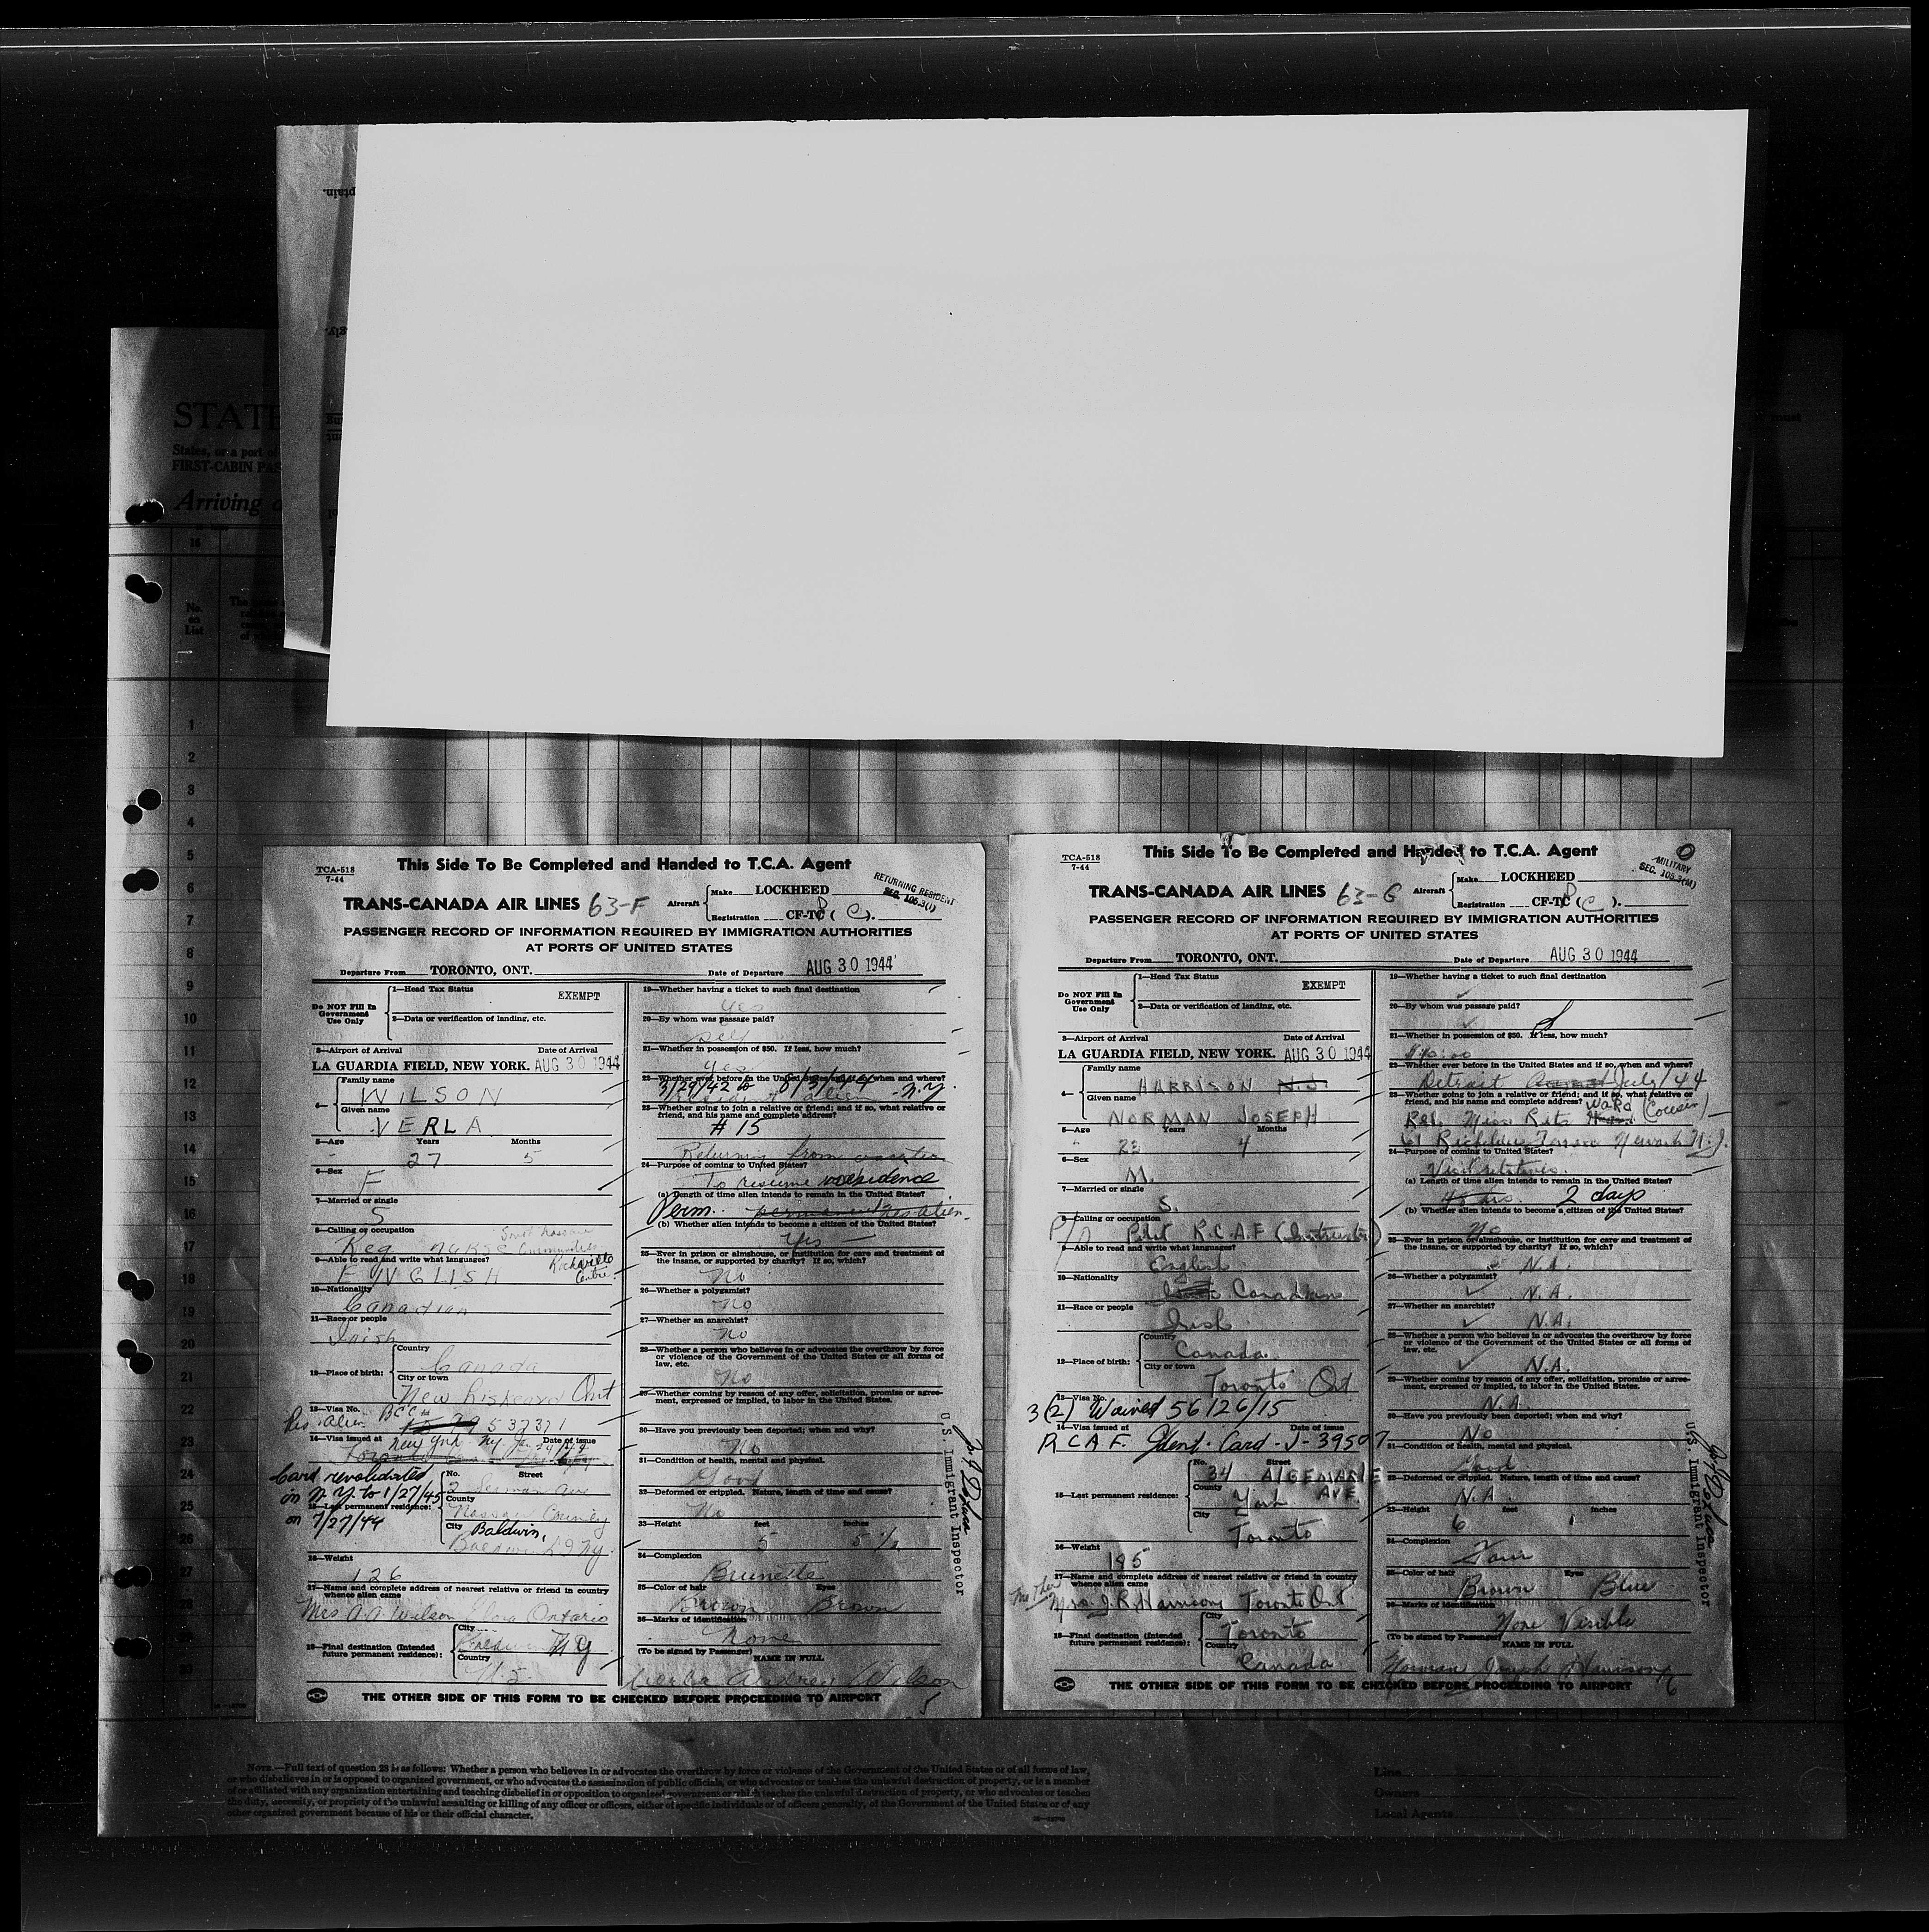 STATE
States, or a port of
FIRST-CABIN PAS
Arriving
No.
on
List
1
2
3
4
5
6
7
8
9
10
11
12
13
14
15
16
17
18
19
20
21
22
23
24
25
26
27
28
29
30
TCA-518
7-44
This Side To Be Completed and Handed to T.C.A. Agent
TRANS-CANADA AIR LINES 63-F
Aircraft
Make LOCKHEED
Registration CF-TC (C).
RETURNING RESIDENT
SEC. 106.3(1)
PASSENGER RECORD OF INFORMATION REQUIRED BY IMMIGRATION AUTHORITIES
AT PORTS OF UNITED STATES
Departure From TORONTO, ONT.
Date of Departure AUG 30 1944
Do NOT Fill In
Government
Use Only
1—Head Tax Status
EXEMPT
2—Data or verification of landing, etc.
3—Airport of Arrival
Date of Arrival
LA GUARDIA FIELD, NEW YORK. AUG 30 1944
4—
Family name
WILSON
Given name
VERLA
5—Age
Years
Months
27
5
6—Sex
F
7—Married or single
S
8—Calling or occupation
Reg. nurse
9—Able to read and write what languages?
ENGLISH
Rockville
Centre
10—Nationality
Canadian
11—Race or people
Irish
12—Place of birth:
Country
Canada
City or town
New Liskeard Ont
13—Visa No.
Res. Alien BCC#
537371
14—Visa issued at
Date of issue
New York NY
Card revalidated
in N.Y. to 1/27/45
on 7/27/44
15—Last permanent residence:
No.
Street
County
Nassau County
City
Baldwin,
Baldwin L I NY.
16—Weight
126
17—Name and complete address of nearest relative or friend in country
whence alien came
Mrs A.A. Wilson Ontario
18—Final destination (Intended
future permanent residence):
City
Baldwin N Y
Country
U.S.
19—Whether having a ticket to such final destination
Yes
20—By whom was passage paid?
Self
21—Whether in possession of $50. If less, how much?
Yes
22—Whether ever before in the United States and if so, when and where?
3/29/42 to 8/3/44 - N.Y.
Resident alien
23—Whether going to join a relative or friend; and if so, what relative or
friend, and his name and complete address?
# 15
Returning from vacation
24—Purpose of coming to United States?
To resume residence
(a) Length of time alien intends to remain in the United States?
Perm. permanent res. alien.
(b) Whether alien intends to become a citizen of the United States?
Yes
25—Ever in prison or almshouse, or institution for care and treatment of
the insane, or supported by charity? If so, which?
No
26—Whether a polygamist?
No
27—Whether an anarchist?
No
28—Whether a person who believes in or advocates the overthrow by force
or violence of the Government of the United States or all forms of
law, etc.
No
29—Whether coming by reason of any offer, solicitation, promise or agree-
ment, expressed or implied, to labor in the United States.
30—Have you previously been deported; when and why?
No
31—Condition of health, mental and physical.
Good
32—Deformed or crippled. Nature, length of time and cause?
No
33—Height
feet
inches
5
5 ½
34—Complexion
Brunette
35—Color of hair
Eyes
Brown
Brown
36—Marks of Identification
None
(To be signed by Passenger)
NAME IN FULL
Audrey Wilson
5
U.S. Immigrant Inspector
THE OTHER SIDE OF THIS FORM TO BE CHECKED BEFORE PROCEEDING TO AIRPORT
TCA-518
7-44
This Side To Be Completed and Handed to T.C.A. Agent
TRANS-CANADA AIR LINES 63-G
Aircraft
Make LOCKHEED
Registration CF-TC (C).
MILITARY
SEC. 105.3(M)
PASSENGER RECORD OF INFORMATION REQUIRED BY IMMIGRATION AUTHORITIES
AT PORTS OF UNITED STATES
Departure From TORONTO, ONT.
Date of Departure AUG 30 1944
Do NOT Fill In
Government
Use Only
1—Head Tax Status
EXEMPT
2—Data or verification of landing, etc.
3—Airport of Arrival
Date of Arrival
LA GUARDIA FIELD, NEW YORK. AUG 30 1944
4—
Family name
HARRISON N.J
Given name
NORMAN JOSEPH
5—Age
Years
Months
23
4
6—Sex
M.
7—Married or single
S.
8—Calling or occupation
P/O Pilot R.C.A.F (Instructor)
9—Able to read and write what languages?
English
10—Nationality
Canadian
11—Race or people
Irish
12—Place of birth:
Country
Canada.
City or town
Toronto Ont
13—Visa No.
3(2) Waived 56126/15
14—Visa issued at
Date of issue
R C A F. Ident. Card - J - 39507
15—Last permanent residence:
No.
Street
34 ALGEMARIE
AVE.
County
York
City
Toronto
16—Weight
195
17—Name and complete address of nearest relative or friend in country
whence alien came
Mother
Mrs. J.R. Harrison Toronto Ont
18—Final destination (Intended
future permanent residence):
City
Toronto
Country
Canada
19—Whether having a ticket to such final destination
20—By whom was passage paid?
21—Whether in possession of $50. If less, how much?
$40.00
22—Whether ever before in the United States and if so, when and where?
Detroit July/44
23—Whether going to join a relative or friend; and if so, what relative or
friend, and his name and complete address?
Rel. Miss Rita Ward (Cousin)
61 Richelieu Terrace Newark N.J.
24—Purpose of coming to United States?
Visit relatives.
(a) Length of time alien intends to remain in the United States?
48 hrs. 2 days
(b) Whether alien intends to become a citizen of the United States?
No
25—Ever in prison or almshouse, or institution for care and treatment of
the insane, or supported by charity? If so, which?
N.A.
26—Whether a polygamist?
N.A.
27—Whether an anarchist?
N.A.
28—Whether a person who believes in or advocates the overthrow by force
or violence of the Government of the United States or all forms of
law, etc.
N.A.
29—Whether coming by reason of any offer, solicitation, promise or agree-
ment, expressed or implied, to labor in the United States.
N.A.
30—Have you previously been deported; when and why?
No
31—Condition of health, mental and physical.
Good.
32—Deformed or crippled. Nature, length of time and cause?
N.A.
33—Height
feet
inches
6
1
34—Complexion
Fair
35—Color of hair
Eyes
Brown
Blue
36—Marks of Identification
None Visible
(To be signed by Passenger)
NAME IN FULL
Norman Joseph Harrison
6
U.S. Immigrant Inspector
THE OTHER SIDE OF THIS FORM TO BE CHECKED BEFORE PROCEEDING TO AIRPORT
NOTE.—Full text of question 28 is as follows: Whether a person who believes in or advocates the overthrow by force or violence of the Government of the United States or of all forms of law,
or who disbelieves in or is opposed to organized government, or who advocates the assassination of public officials, or who advocates or teaches the unlawful destruction of property, or is a member
of or affiliated with any organization entertaining and teaching disbelief in or opposition to organized government or which teaches the unlawful destruction of property, or who advocates or teaches
the duty, necessity, or propriety of the unlawful assaulting or killing of any officer or officers, either of specific individuals or of officers generally, of the Government of the United States or of any
other organized government because of his or their official character.
Line
Owners
Local Agents